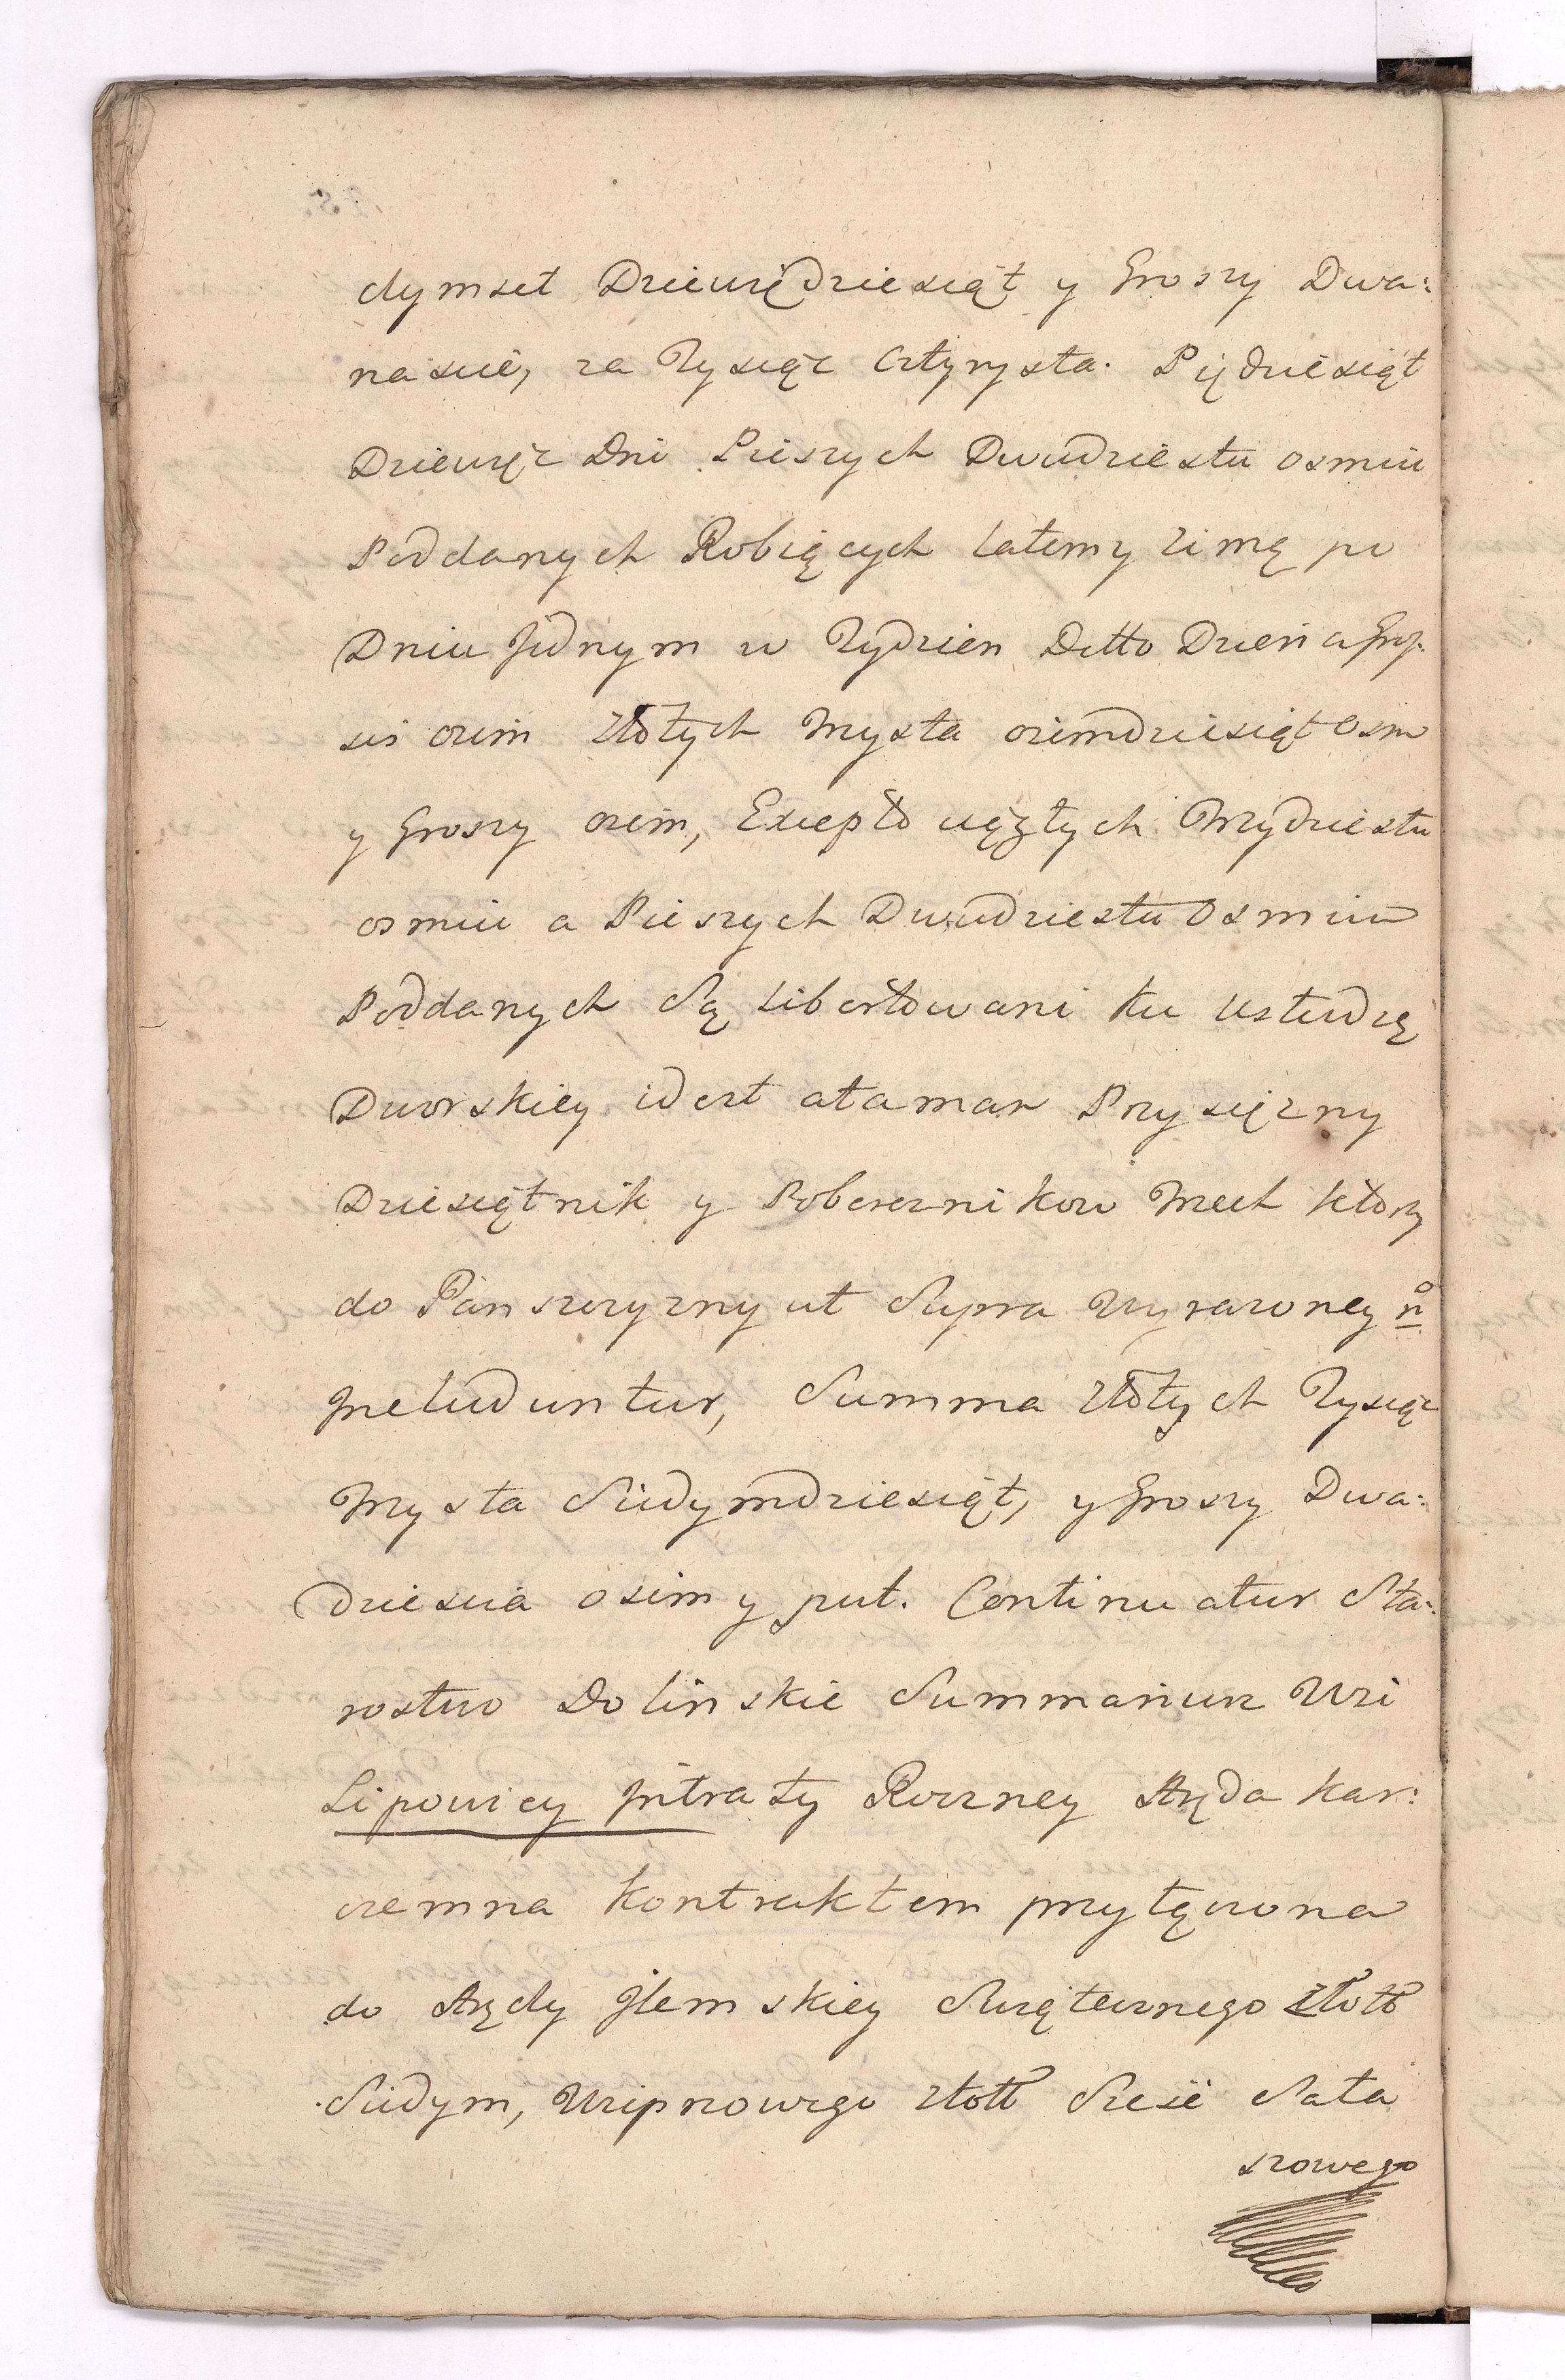 dymset Dziewiędziesiąt y Groszy Dwa:
nascie, za Tysiąc Cztyrysta. Piędziesiąt
Dziewięc Dni Pieszych Dwudziestu osmiu
Poddanych Robiących Latem y zimą po
Dniu Jednym w Tydzien Detto Dzień a groſ.
sis ośim złotych Trzysta osimdziesiąt Osm
y Groszy osim, Excepto cięzłych Trzydziestu
osmiu a Pieszych Dwudziestu Osmiu
Poddanych Są Libertowani ku Usłudzę
Dworskiey id est ataman Przysięzny
Dziesiętnik y Pobereznikow Trzech ktorzy
do Panszczyzny ut Supra Wyrazoney ño
Jncluduntur, Summa złotych Tysiąc
Trzysta Siedymdziesiąt, y Groszy Dwa:
dziescia osim y puł. Continuatur Sta:
rostwo Dolinskie Summariusz Wsi
Lipowicy Jntraty Roczney Aręda kar:
czemna kontraktem przyłączona
do Arędy Jlemskiey Swiętecznego złott
Siedym, Wiepnowego złott Szesć Sała
szowego